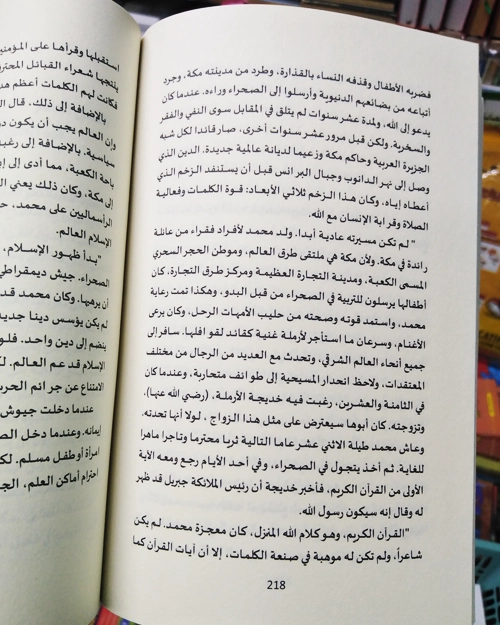 فضربه الأطفال وقذفه النساء بالقذارة، وطرد من مدينته مكة، وجرد
أتباعه من بضائعهم الدنيوية وأرسلوا إلى الصحراء وراءه. عندما كان
يدعو إلى الله، ولمدة عشر سنوات لم يتلق في المقابل سوى النفي والفقر
والسخرية. ولكن قبل مرور عشر سنوات أخرى، صار قائدا لكل شبه
الجزيرة العربية وحاكم مكة وزعيما لديانة عالمية جديدة. الدين الذي
وصل إلى نهر الدانوب وجبال البرانس قبل أن يستنفد الزخم الذي
أعطاه إياه، وكان هذا الزخم ثلاثي الأبعاد: قوة الكلمات وفعالية
الصلاة وقرابة الإنسان مع الله.
"لم تكن مسيرته عادية أبدا. ولد محمد لأفراد فقراء من عائلة
رائدة في مكة. ولأن مكة هي ملتقى طرق العالم، وموطن الحجر السحري
المسمى الكعبة، ومدينة التجارة العظيمة ومركز طرق التجارة، كان
أطفالها يرسلون للتربية في الصحراء من قبل البدو، وهكذا تمت رعاية
محمد، واستمد قوته وصحته من حليب الأمهات الرحل، وكان يرعى
الأغنام، وسرعان ما استأجر لأرملة غنية كقائد لقوافلها. سافر إلى
جميع أنحاء العالم الشرقي، وتحدث مع العديد من الرجال من مختلف
المعتقدات، ولاحظ انحدار المسيحية إلى طوائف متحاربة، وعندما كان
في الثامنة والعشرين، رغبت فيه خديجة الأرملة، (رضي الله عنها)،
وتزوجته. كان أبوها سيعترض على مثل هذا الزواج، لولا أنها تحدته.
وعاش محمد طيلة الاثني عشر عاما التالية ثريا محترما وتاجرا ماهرا
للغاية. ثم أخذ يتجول في الصحراء، وفي أحد الأيام رجع ومعه الآية
الأولى من القرآن الكريم، فأخبر خديجة أن رئيس الملائكة جبريل قد ظهر
له وقال إنه سيكون رسول الله.
"القرآن الكريم، وهو كلام الله المنزل، كان معجزة محمد. لم يكن
شاعراً، ولم تكن له موهبة في صنعة الكلمات، إلا أن آيات القرآن كما
218
استقبلها وقرأها على
ينتجها شعراء القبائل
فكانت لهم الكلمات أعظم
بالإضافة إلى ذلك، قال
وإن العالم يجب أن يكون
سياسية. بالإضافة إلى
باحة الكعبة، مما أدى إلى
إلى مكة، وكان ذلك يعني
الرأسماليين على محمد،
الإسلام العالم.
"بدأ ظهور الإسلام،
الصحراء. جيش ديمقراطي
أن يرهبها. وكان محمد قد
لم يكن يؤسس دينا جديدا
ينضم إلى دين واحد. فلو
الإسلام قد عم العالم.
الامتناع عن جرائم الحرب
عندما دخلت جيوش
إيمانه. وعندما دخل
امرأة أو طفل مسلم.
احترام أماكن العلم،